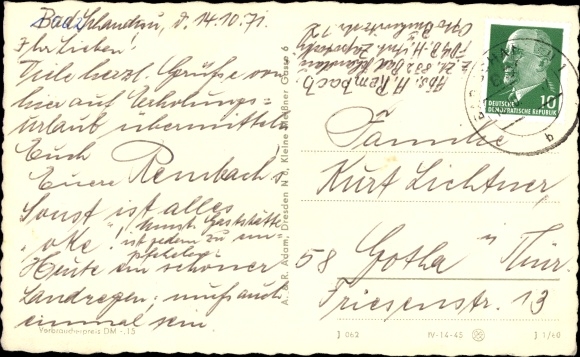 Bad Schandau, d. 14.10.71.
Ihr Lieben!
Viele herzl. Grüße von
hier auf Erholungs=
urlaub übermitteln
Euch
Eure Rembach's
Sonst ist alles
"oke"! unsr. Gaststätte
ist jedem zu em=
pfehlen.
Heute ein schöner
Landregen; muß auch
einmal sein
Verbraucherpreis DM -.15
A. & R. Adam, Dresden N 6, Kleine Meißner Gasse 6
Abs. H. Rembach
z. Zt. 832 Bad Schandau
FDGB.-H.
DEUTSCHE
DEMOKRATISCHE REPUBLIK
10
b
Familie
Kurt Lichtner
58 Gotha / Thür.
Friesenstr. 13
J 062
IV-14-45
J 1/60